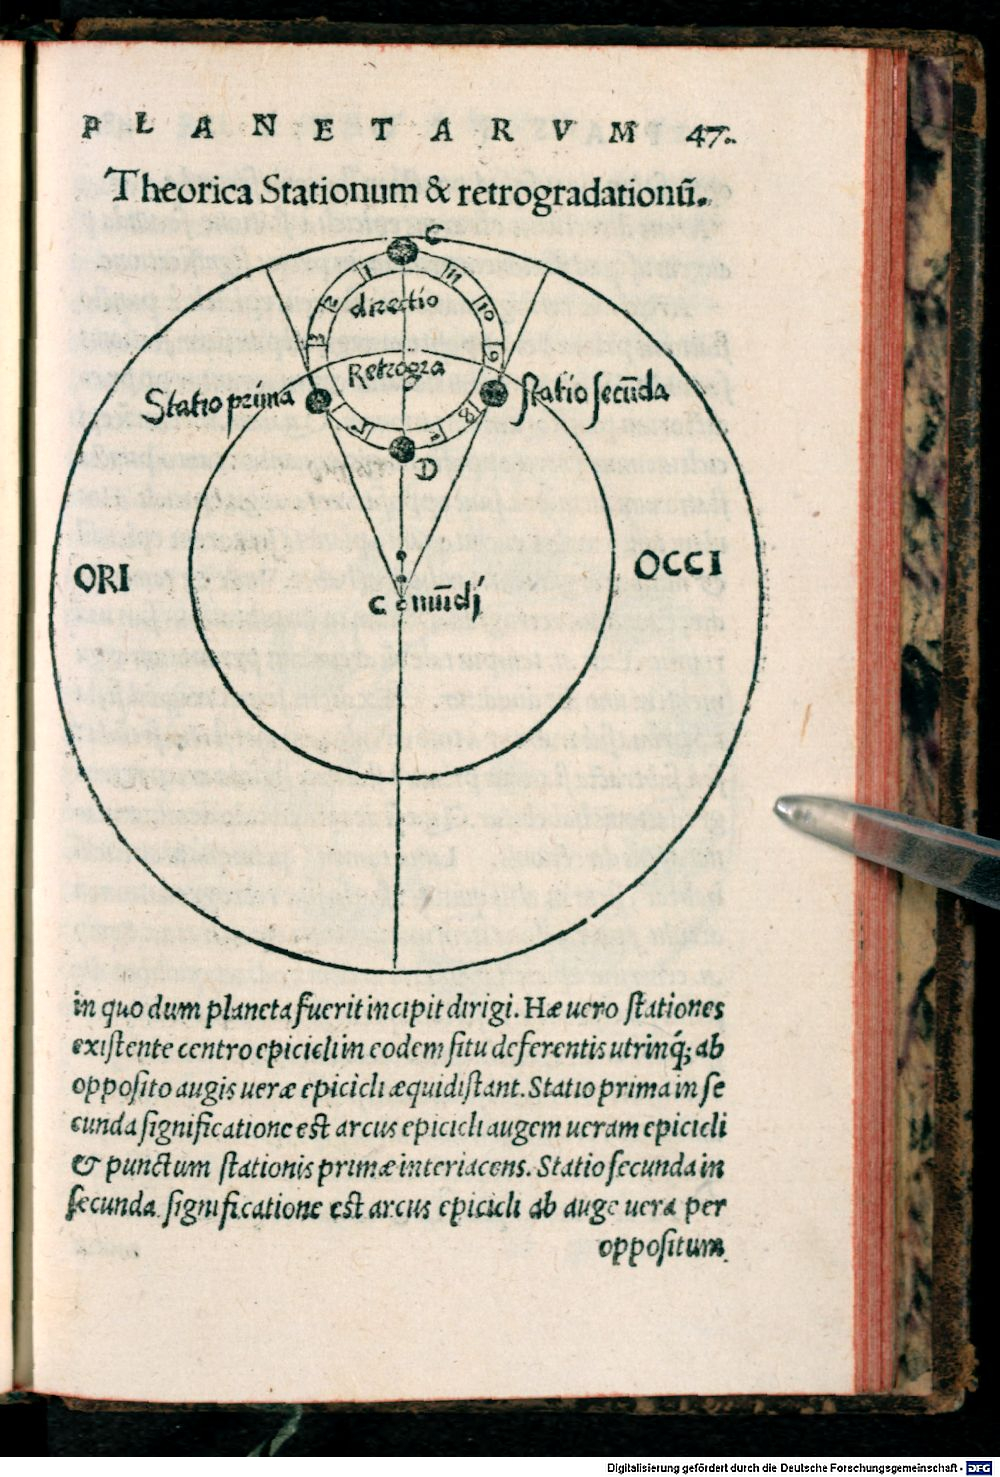 PLANETARVM 47.
Theorica Stationum & retrogradationū.
C
1 11
2 directio 10
3 9
Retrogra
Statio prima statio secūda
8
D
ORI OCCI
C mūdi
in quo dum planeta fuerit incipit dirigi. Hæ uero stationes
existente centro epicicli in eodem situ deferentis utrinq; ab
opposito augis ueræ epicicli æquidistant. Statio prima in se
cunda significatione est arcus epicicli augem ueram epicicli
& punctum stationis primæ interiacens. Statio secunda in
secunda significatione est arcus epicicli ab auge uera per
oppositum
Digitalisierung gefördert durch die Deutsche Forschungsgemeinschaft - DFG